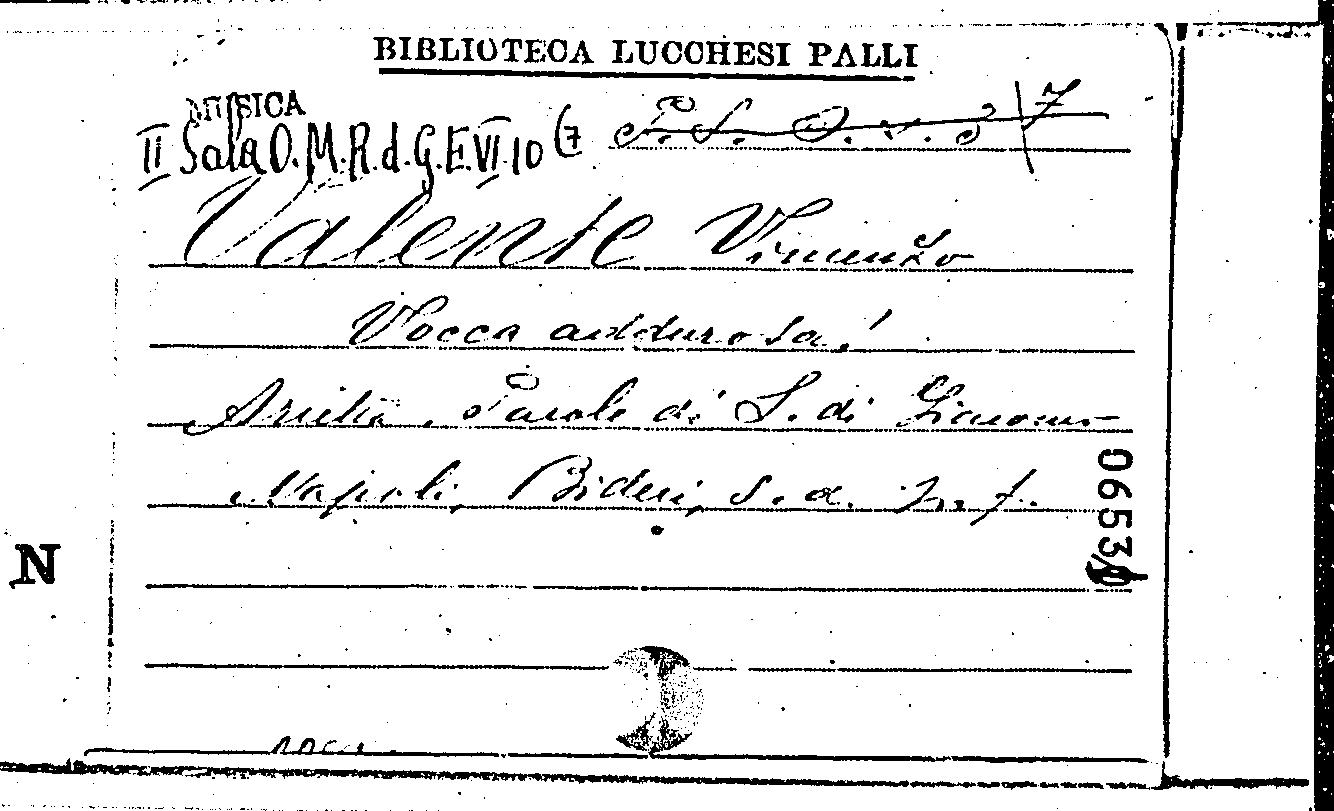 BIBLIOTECA LUCCHESI PALLI
MUSICA
II Sala O.M.R.d.G.E.VI.10 (7
F. S. O. s. 3 7
Valente Vincenzo
Vocca addurosa!
Arietta. Parole di S. di Giacomo
Napoli, Bideri, s.d. in f.
0653
N